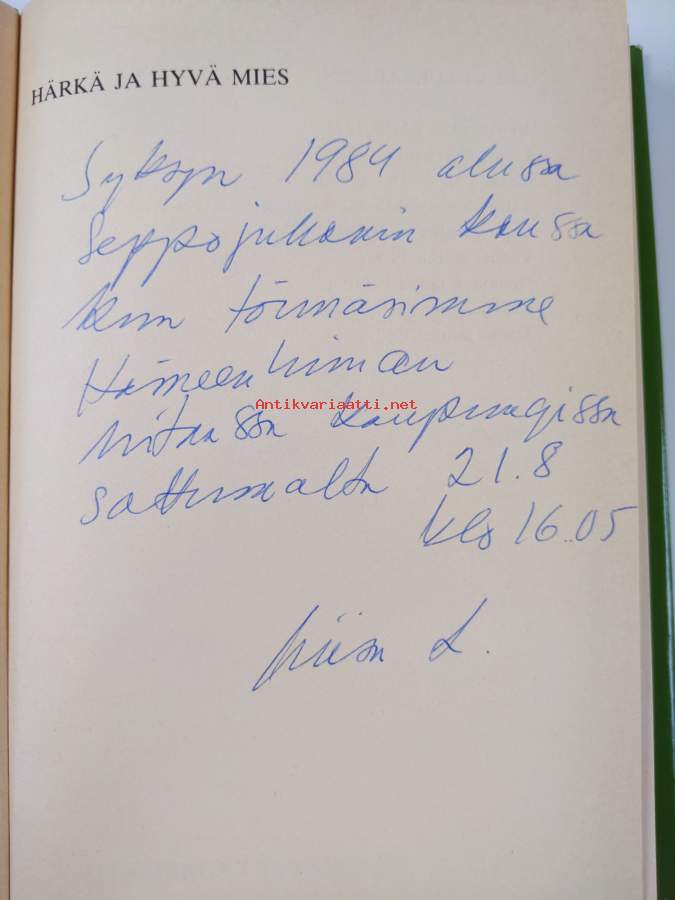 HÄRKÄ JA HYVÄ MIES
Syksyn 1984 alussa
Seppojuhanin kanssa
kun törmäsimme
Hämeenlinnan
Antikvariaatti.net
kaupungissa
sattumalta 21.8
klo 16.05
L.